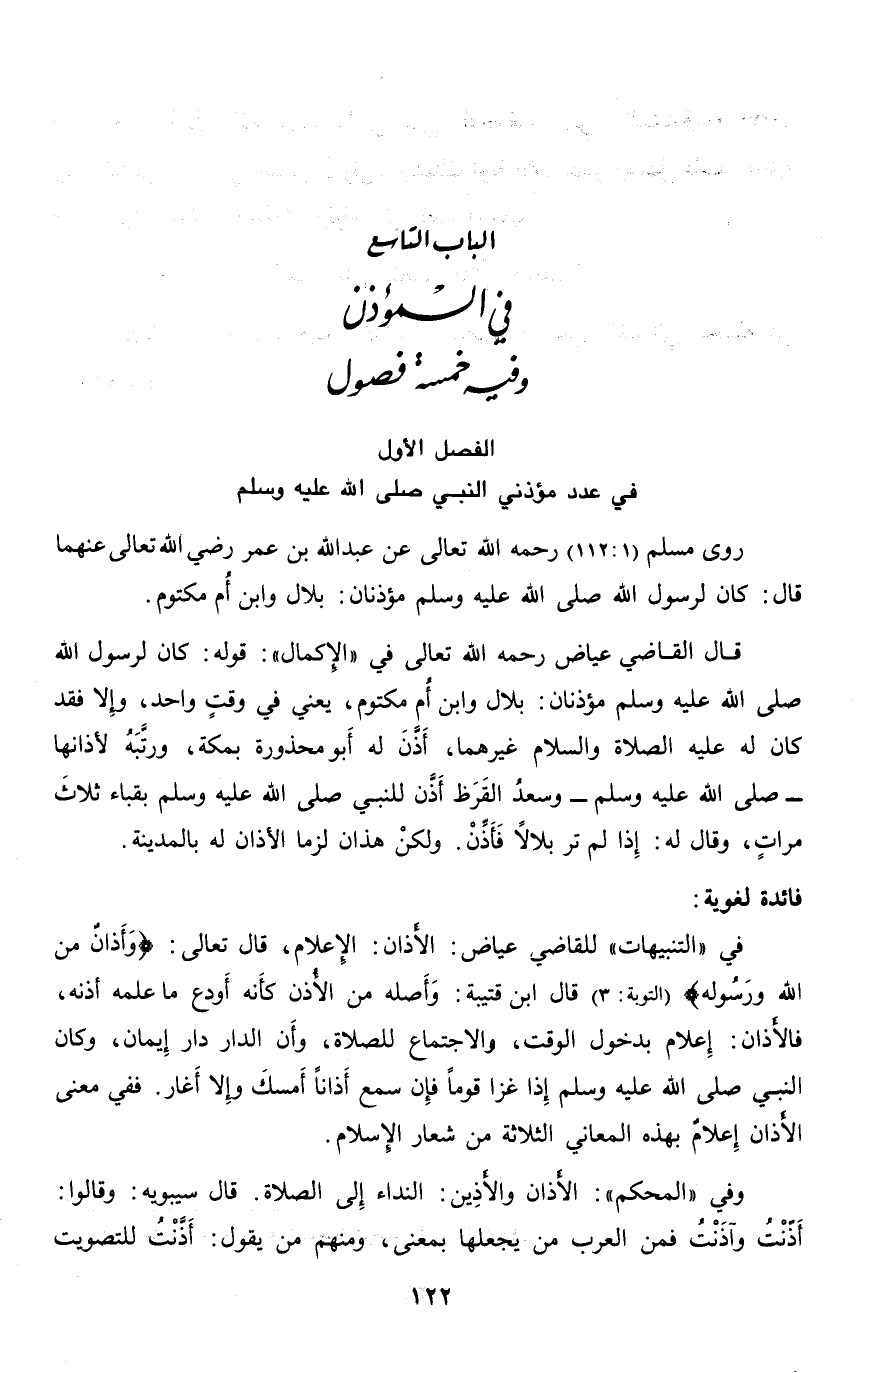 الباب التاسع
في المؤذن
وفيه خمسة فصول
الفصل الأول
في عدد مؤذني النبي صلى الله عليه وسلم
روى مسلم (١١٢:١) رحمه الله تعالى عن عبدالله بن عمر رضي الله تعالى عنهما
قال: كان لرسول الله صلى الله عليه وسلم مؤذنان: بلال وابن أُم مكتوم.
قال القاضي عياض رحمه الله تعالى في «الإكمال»: قوله: كان لرسول الله
صلى الله عليه وسلم مؤذنان: بلال وابن أُم مكتوم، يعني في وقتٍ واحد، وإلا فقد
كان له عليه الصلاة والسلام غيرهما، أَذَّنَ له أَبو محذورة بمكة، ورتَّبَهُ لأذانها
ــ صلى الله عليه وسلم ــ وسعدُ القَرَظ أَذَّن للنبي صلى الله عليه وسلم بقباء ثلاثَ
مراتٍ، وقال له: إِذا لم تر بلالاً فَأَذِّنْ. ولكنْ هذان لزما الأذان له بالمدينة.
فائدة لغوية:
في «التنبيهات» للقاضي عياض: الأَذان: الإِعلام، قال تعالى: ﴿وَأَذانٌ من
الله ورَسُوله﴾ (التوبة: ٣) قال ابن قتيبة: وَأَصله من الأُذن كأَنه أَودع ما علمه أذنه،
فالأَذان: إِعلام بدخول الوقت، والاجتماع للصلاة، وأَن الدار دار إِيمان، وكان
النبي صلى الله عليه وسلم إِذا غزا قوماً فإِن سمع أَذاناً أَمسكَ وإِلا أَغار. ففي معنى
الأَذان إِعلامٌ بهذه المعاني الثلاثة من شعار الإِسلام.
وفي «المحكم»: الأَذان والأَذِين: النداء إِلى الصلاة. قال سيبويه: وقالوا:
أَذَّنْتُ وآذَنْتُ فمن العرب من يجعلها بمعنى، ومنهم من يقول: أَذَّنْتُ للتصويت
١٢٢